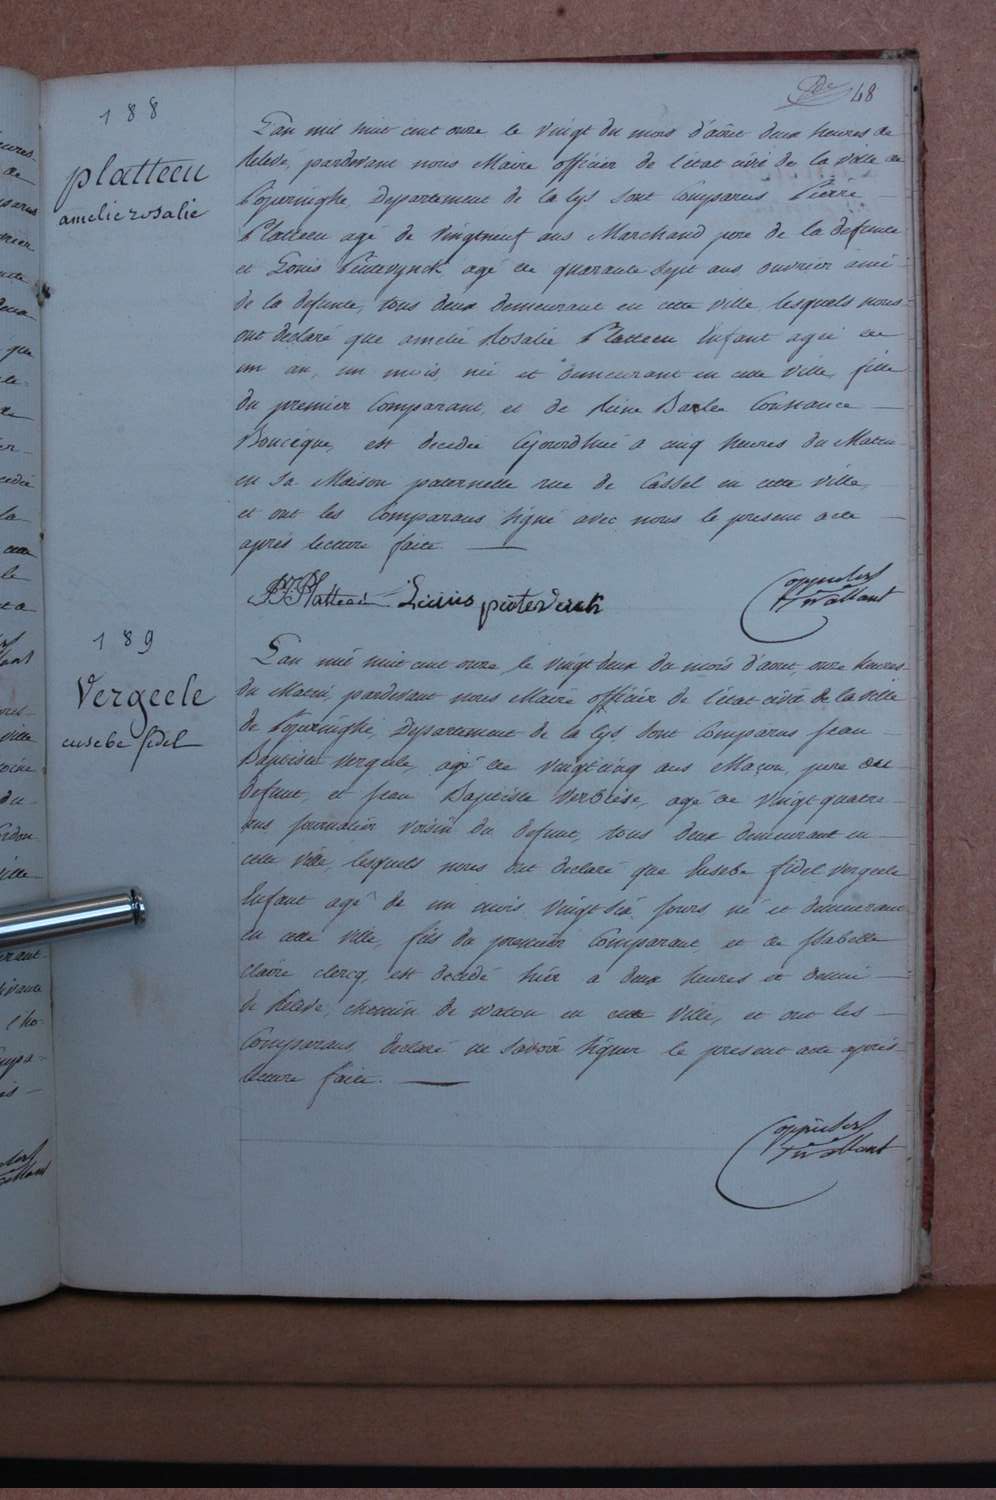 48
188
platteeu
amelie rosalie
L'an mil huit cent onze le vingt du mois d'aôut deux heures de
relevé, pardevant nous Maire officier de l'état civil de la ville de
Poperinghe, Departement de la lys sont Comparus Pierre
Platteeu agé de vingtneuf ans Marchand pere de la defunte
et Louis Pieterynck agé de quarante sept ans ouvrier ami
de la defunte, tous deux demeurant en cette ville, lesquels nous
ont declaré que amelie Rosalie Platteeu Enfant agée de
un an, un mois, née et demeurant en cette ville, fille
du premier Comparant, et de Reine Barbe Constance
Boucique, est decedée Cejourdhui a cinq heures du Matin
en sa Maison paternelle rue de Cassel en cette ville,
et ont les Comparans signé avec nous le present acte
aprés lecture faite.
PJ Platteeu Louis pieterinck
189
Vergeele
eusebe fidel
L'an mil huit cent onze, le vingt deux du mois d'aout, onze heures
du Matin, pardevant nous Maire officier de l'état civil de la ville
de Poperinghe, Departement de la lys sont Comparus Jean
Baptiste Vergeele, agé de vingt cinq ans Maçon, pere du
defunt, et Jean Baptiste agé de vingt quatre
ans journalier voisin du defunt, tous deux demeurant en
cette ville, lesquels nous ont declaré que Eusebe fidel vergeele
Enfant agé de un mois vingt six jours né et demeurant
en cette ville, fils du premier Comparant, et de Isabelle
claire clercq, est decedé hier a deux heures et demie
de Relevé, chemin de waton en cette ville, et ont les
Comparans, declaré ne savoir signer le present acte aprés
lecture faite.